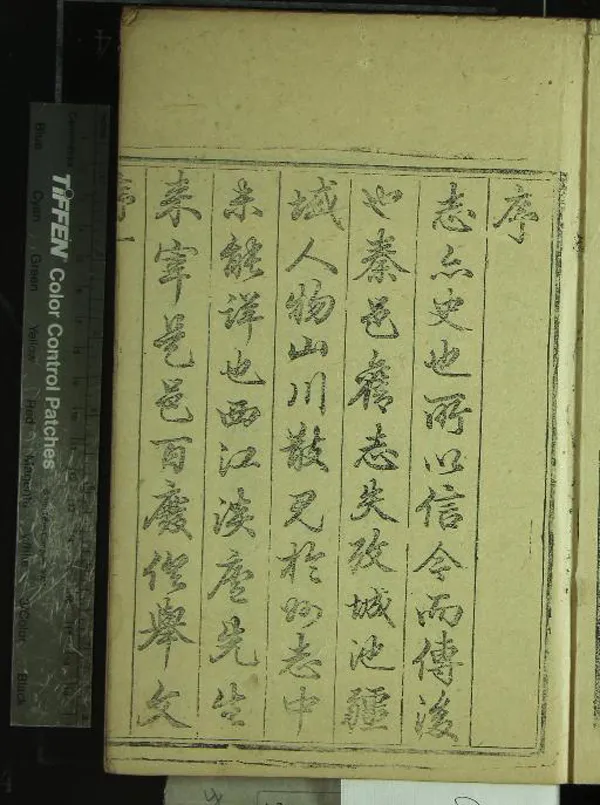 序
志亦史也所以信今而傳後
也秦邑舊志失攷城池疆
域人物山川散見於州志中
未能詳也西江淡廬先生
来宰是邑百廢俱舉文
序一
TIFFEN Color Control Patches
Blue Cyan Green Yellow Red Magenta White 3/Color Black